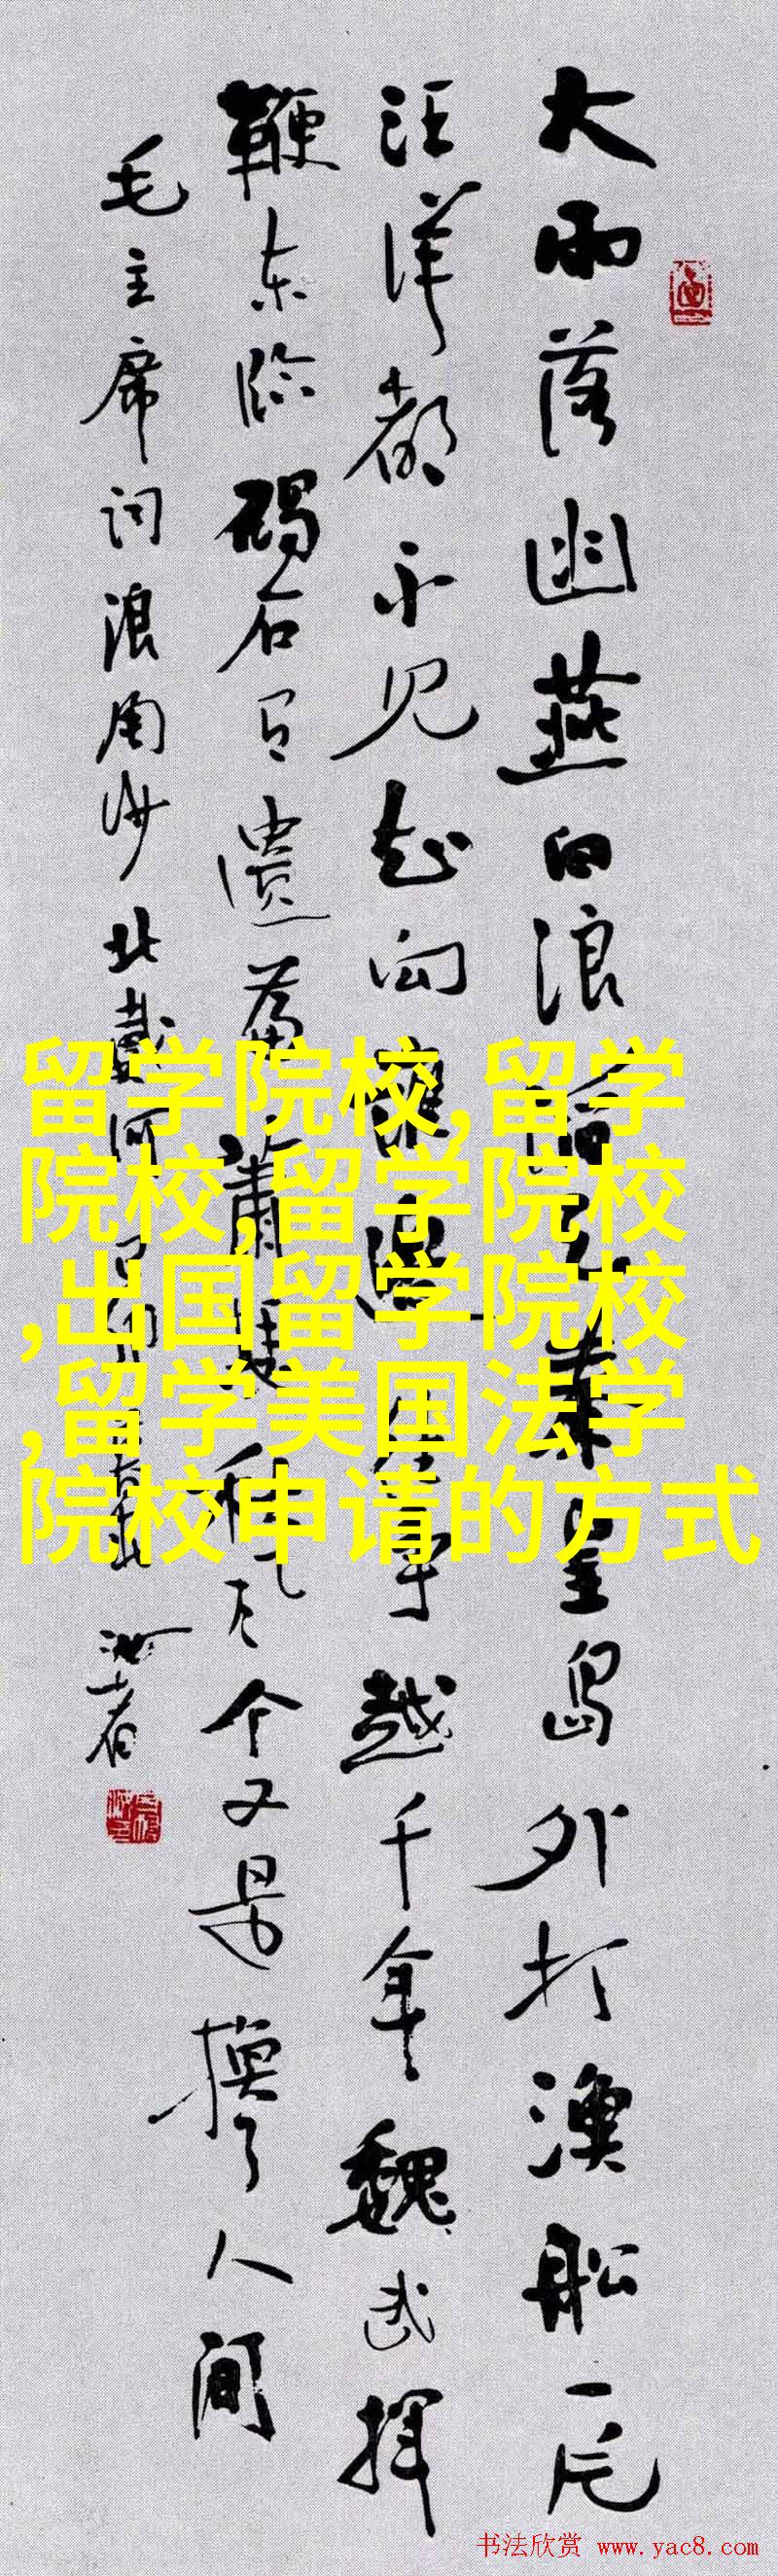 大雨落幽燕白浪滔天秦皇島外打漁船一片
汪洋都不见知向誰邊往事越千年魏武揮
鞭東临碣石有遺篇蕭瑟秋风今又是換了人間
毛主席词浪淘沙北戴河
留学院校,留学
院校,留学院校
,出国留学院校
,留学美国法学
院校申请的方式
书法欣赏 www.yac8.com